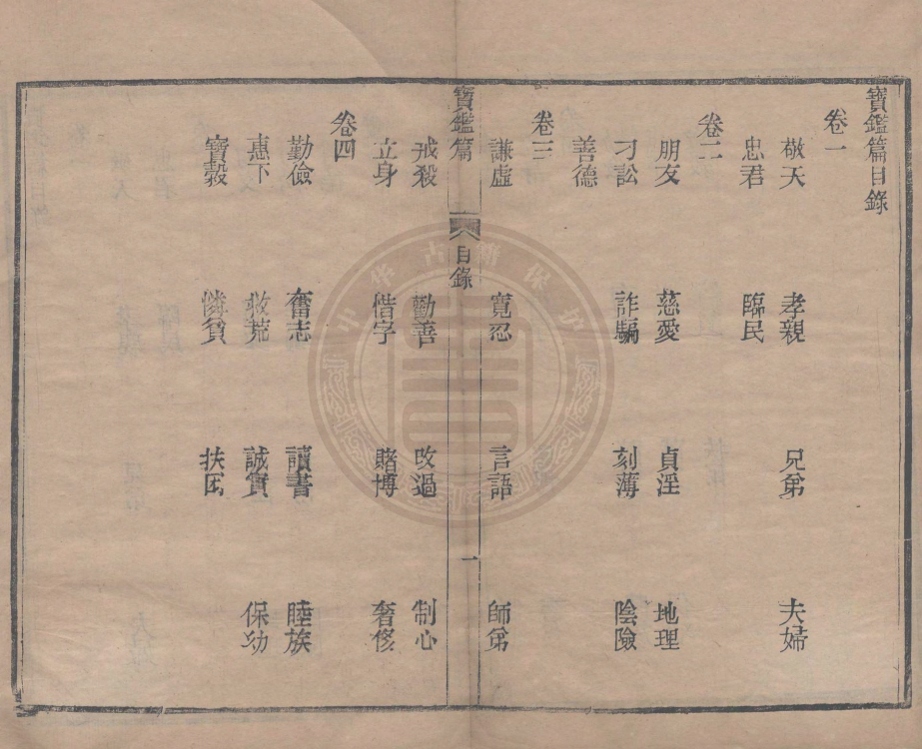 寶鑑篇目錄
卷一
敬天 孝親 兄弟 夫婦
忠君 臨民
卷二
朋友 慈愛 貞淫 地理
刁訟 詐騙 刻薄 陰險
善德
卷三
謙虛 寬忍 言語 師弟
寶鑑篇 目錄 一
戒殺 勸善 改過 制心
立身 惜字 賭博 奢侈
卷四
勤儉 奮志 讀書 睦族
惠下 救荒 誠實 保幼
寶穀 憐貧 扶困
中华古籍保护